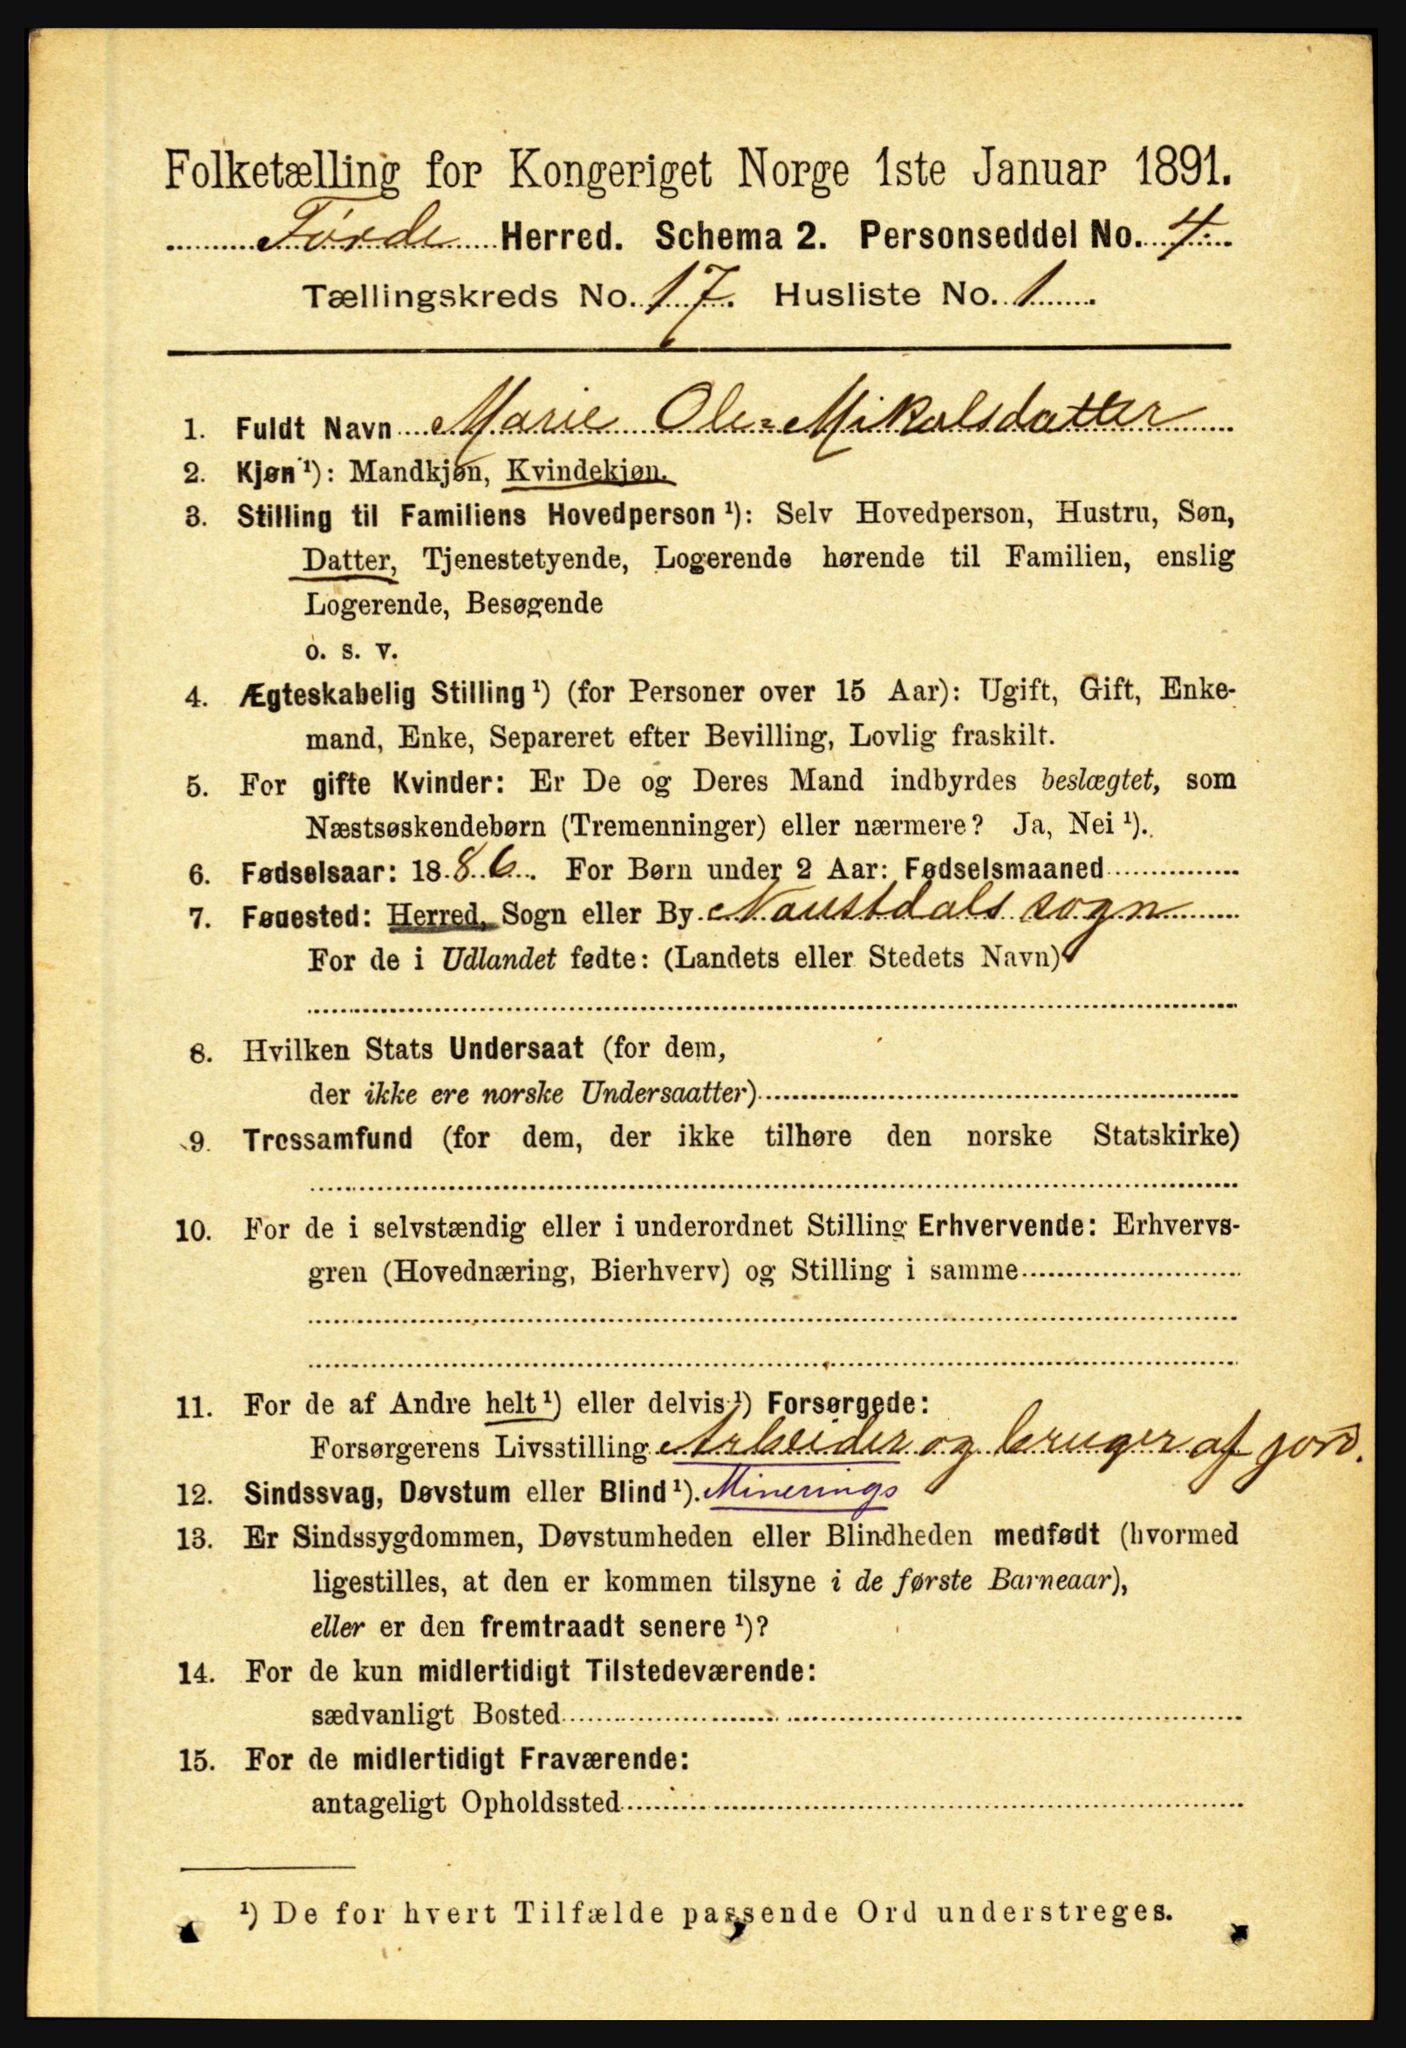 Folketælling for Kongeriget Norge 1ste Januar 1891.
Førde Herred. Schema 2. Personseddel No. 4.
Tællingskreds No. 17. Husliste No. 1
1. Fuldt Navn Marie Ole=Mikalsdatter
2. Kjøn ¹): Mandkjøn, Kvindekjøn.
3. Stilling til Familiens Hovedperson ¹): Selv Hovedperson, Hustru, Søn,
Datter, Tjenestetyende, Logerende hørende til Familien, enslig
Logerende, Besøgende
o. s. v.
4. Ægteskabelig Stilling ¹) (for Personer over 15 Aar): Ugift, Gift, Enke-
mand, Enke, Separeret efter Bevilling, Lovlig fraskilt.
5. For gifte Kvinder: Er De og Deres Mand indbyrdes beslægtet, som
Næstsøskendebørn (Tremenninger) eller nærmere? Ja, Nei ¹).
6. Fødselsaar: 1886. For Børn under 2 Aar: Fødselsmaaned
7. Fødested: Herred, Sogn eller By Naustdals sogn
For de i Udlandet fødte: (Landets eller Stedets Navn)
8. Hvilken Stats Undersaat (for dem,
der ikke ere norske Undersaatter)
9. Trossamfund (for dem, der ikke tilhøre den norske Statskirke)
10. For de i selvstændig eller i underordnet Stilling Erhvervende: Erhvervs-
gren (Hovednæring, Bierhverv) og Stilling i samme
11. For de af Andre helt ¹) eller delvis ¹) Forsørgede:
Forsørgerens Livsstilling Arbeider og bruger af jord.
12. Sindssvag, Døvstum eller Blind ¹). Minerings
13. Er Sindssygdommen, Døvstumheden eller Blindheden medfødt (hvormed
ligestilles, at den er kommen tilsyne i de første Barneaar),
eller er den fremtraadt senere ¹)?
14. For de kun midlertidigt Tilstedeværende:
sædvanligt Bosted
15. For de midlertidigt Fraværende:
antageligt Opholdssted
¹) De for hvert Tilfælde passende Ord understreges.